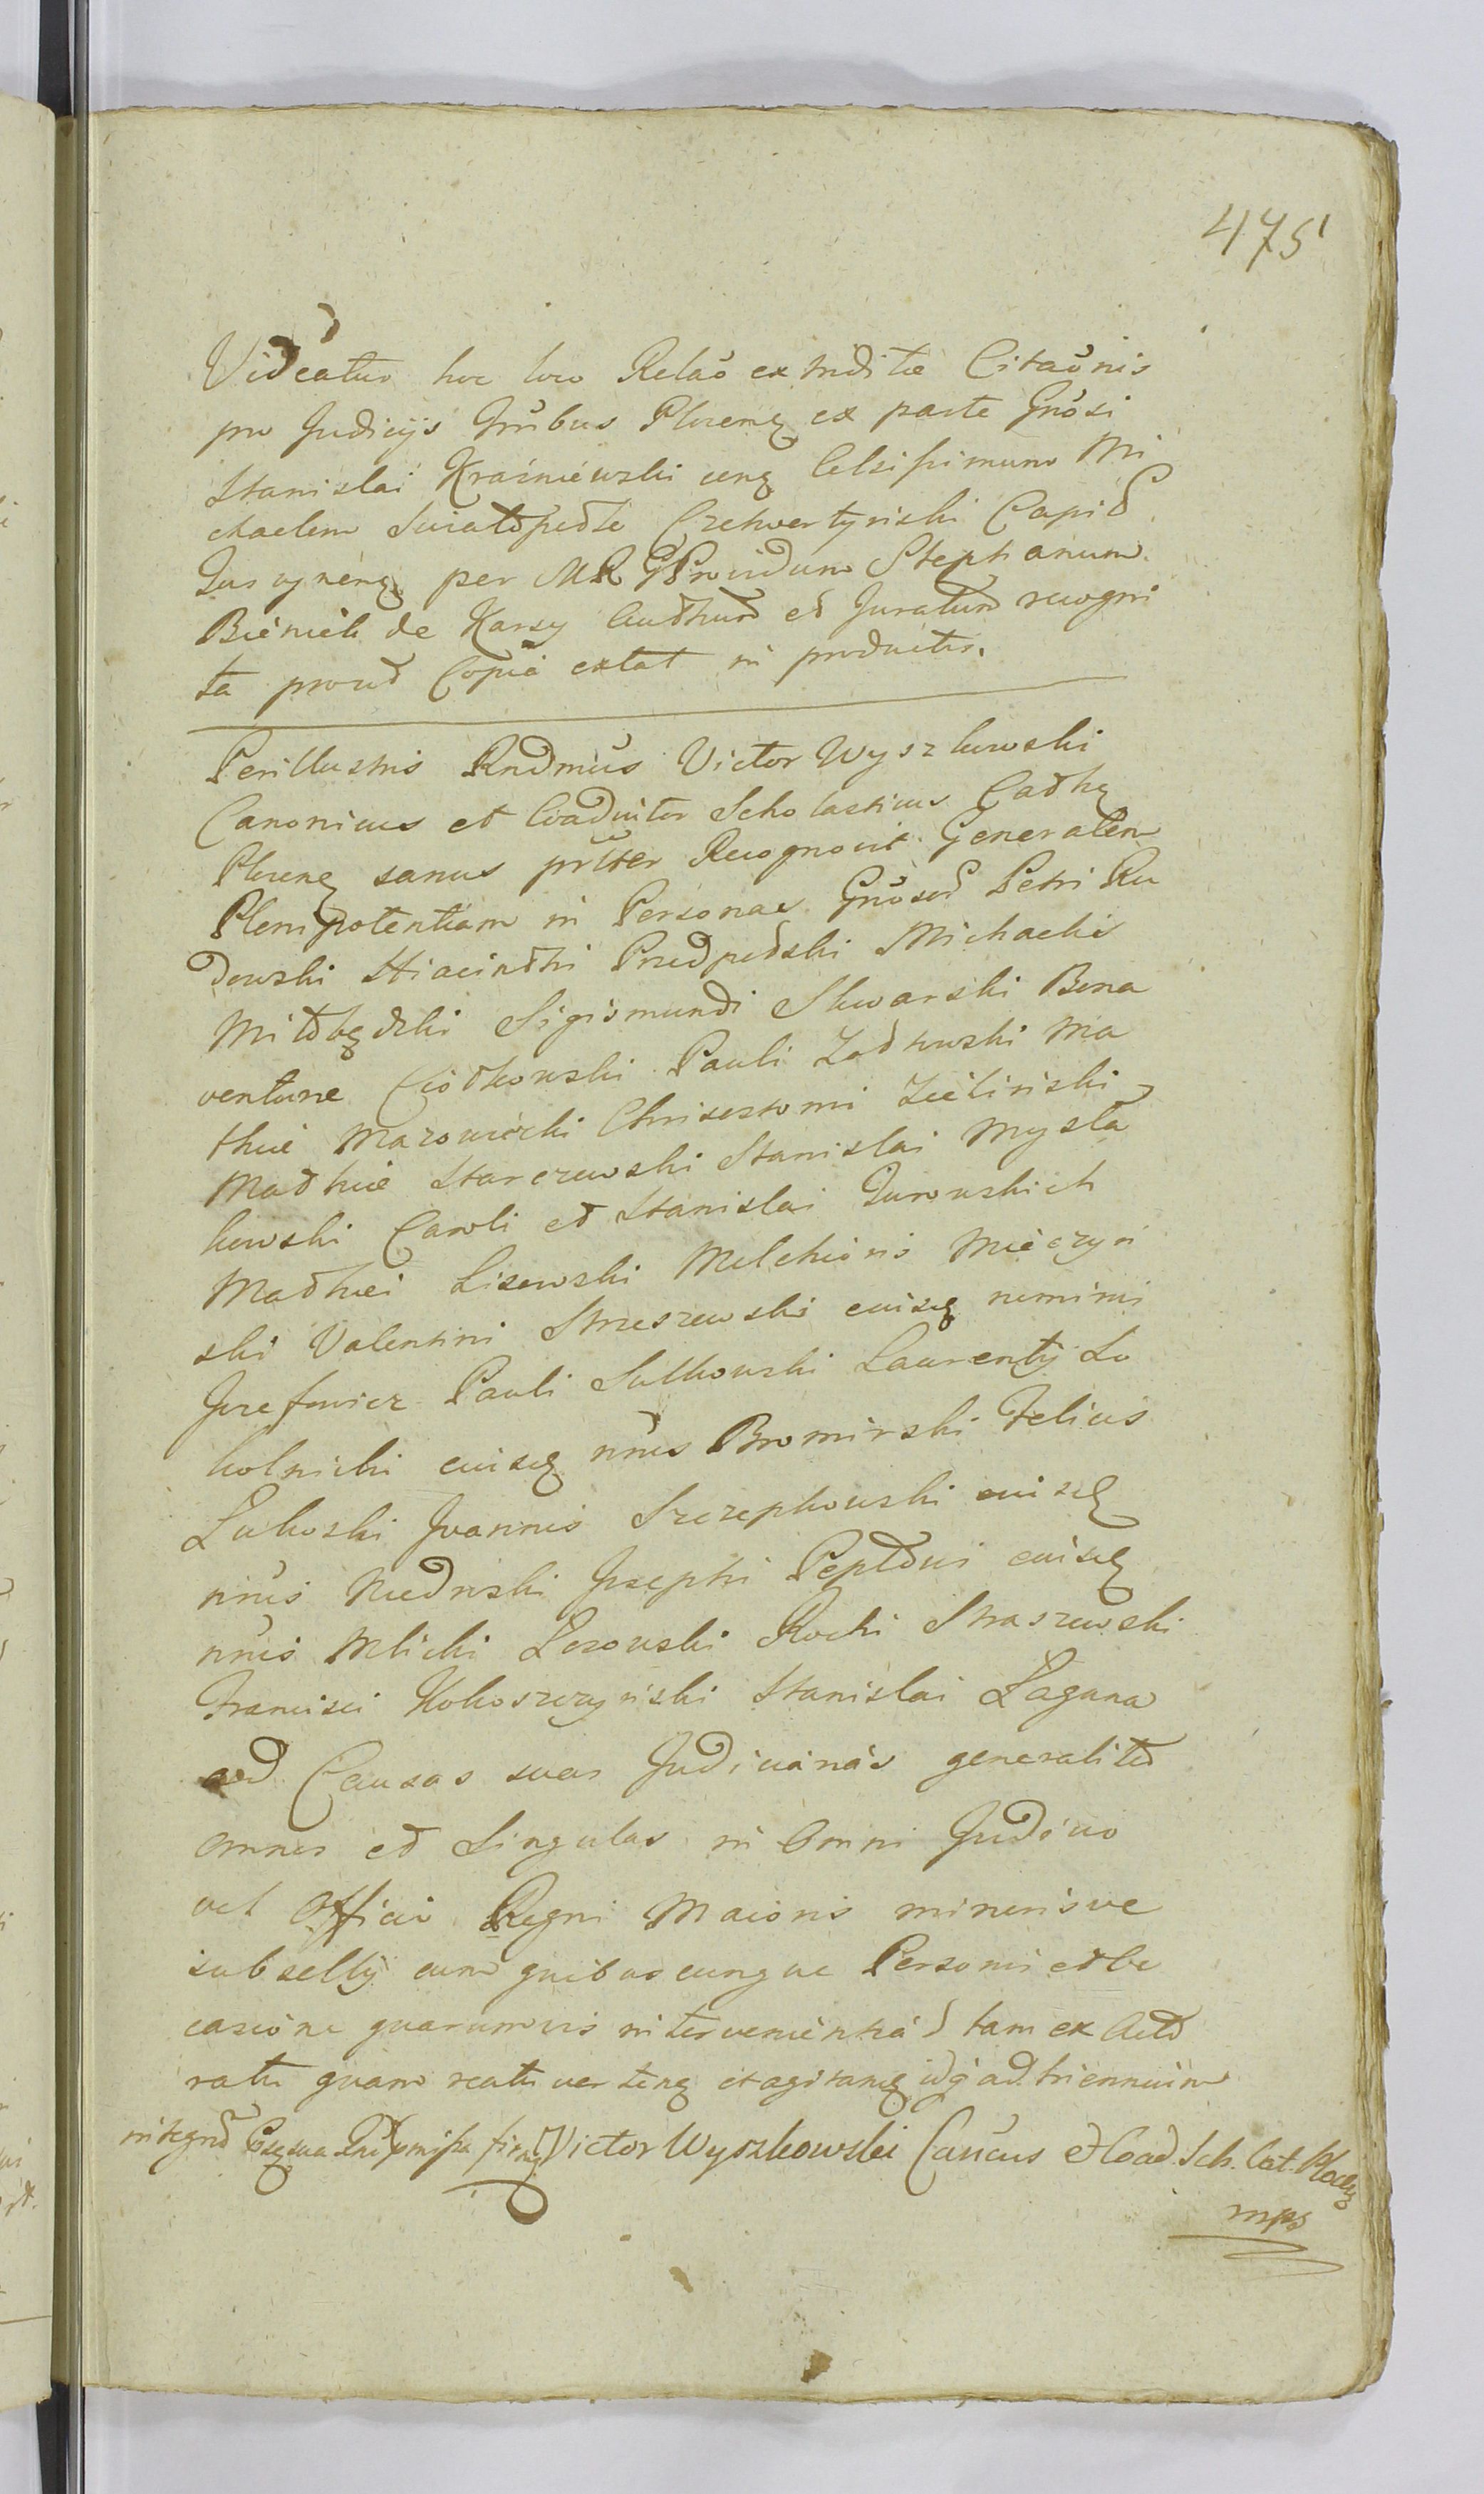 475
Videatur hoc loco Relaõ extraditæ Citaõnis
pro Judicijs Trũbus Plocenę ex parte Gñosi
Stanislai Kraśniewski cenę Celsissimum Mi
chaelem Swiatopełk Czetwertyński Capit
per MRG Providum Stephanum
Bieniek de Karsy Authum et Juratum recogni
ta prout Copia extat in productis.
Perillustris Rndmus Victor Wyszkowski
Canonicus et Coadiutor Scholasticus Cathę
Plocenę sanus pñter Recognovit Generalem
Plenipotentiam in Personas Gñosor Petri Ru
dowski Hiacinthi Przedpełski Michaelis
Miłobędzki Sigismundi Skwarski Bona
venturæ Ciołkowski Pauli Zadkowski Ma
thiæ Mazowiecki Chrisostomi Zieliński
Mathiæ Starczewski Stanislai Mysła
kowski Caroli et Stanislai Turowskich
Mathei Lisowski Melchioris Mieczyń
ski Valentini Strzeszewski eiusdę nominis
Jozefowicz Pauli Sulkowski Laurentij Lu
kolnicki eiusdę nñis Bromirski Felicis
Łukoski Joannis Szczepkowski eiusdę
nñis Niedrski Josephi Pepłowi eiusdę
nñis Mlicki Łozowski Rochi Straszewski
Francisci Kokoszczyński Stanislai Łaguna
ad Causas suas Judiciarias generaliter
omnes et Singulas in Omni Judicio
vel Officio Regni Maioris minorisve
subsellij cum quibuscunque Personis et Oc
casione quarumvis interveniential tam ex Acto
ratu quam reatu vertenę et agitanę idq̃ ad triennium
integrum Victor Wyszkowski Cañcus et Coad. Sch. Cat. Płocę
mpr